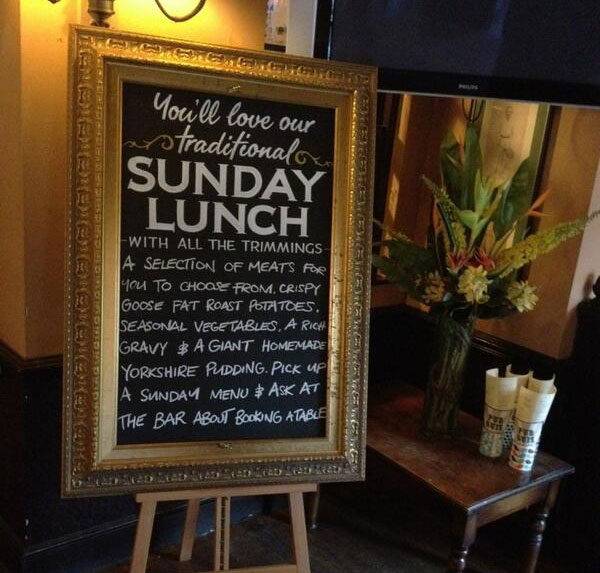 PHILIPS
You'll love our
traditional
SUNDAY
LUNCH
-WITH ALL THE TRIMMINGS-
A SELECTION OF MEATS FOR
YOU TO CHOOSE FROM. CRISPY
GOOSE FAT ROAST POTATOES,
SEASONAL VEGETABLES, A RICH
GRAVY & A GIANT HOMEMADE
YORKSHIRE PUDDING. PICK UP
A SUNDAY MENU & ASK AT
THE BAR ABOUT BOOKING A TABLE
PUB
PUB